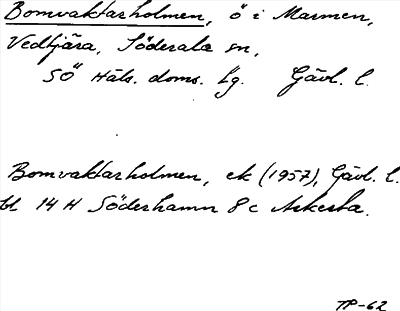 Bomvaktarholmen, ö i Marmen,
Vedtjära, Söderala sn,
SÖ Häls. doms. tg. Gävl. l.
Bomvaktarholmen, ek (1957), Gävl. l.
bl 14 H Söderhamn 8 c Askesta.
TP-62